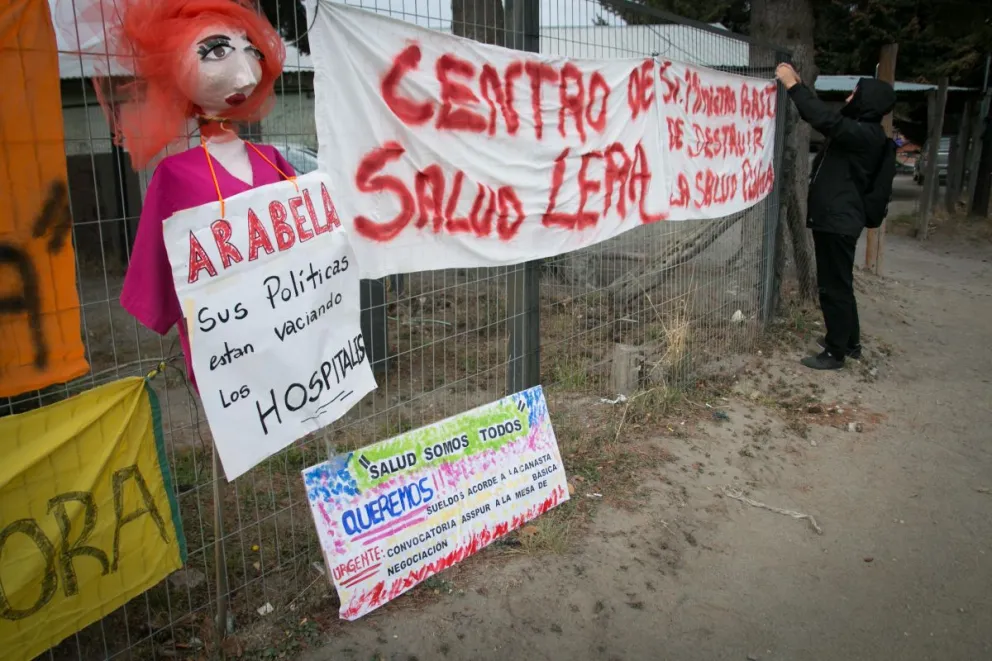 ARABELA
Sus Políticas
estan vaciando
los HOSPITALES
CENTRO DE
SALUD LERA
Sr. MINISTRO
DE DESTRUIR
LA SALUD
"SALUD SOMOS TODOS"
QUEREMOS!! SUELDOS ACORDE A LA CANASTA
BÁSICA
URGENTE: CONVOCATORIA ASSPUR A LA MESA DE
NEGOCIACIÓN
ORA
A